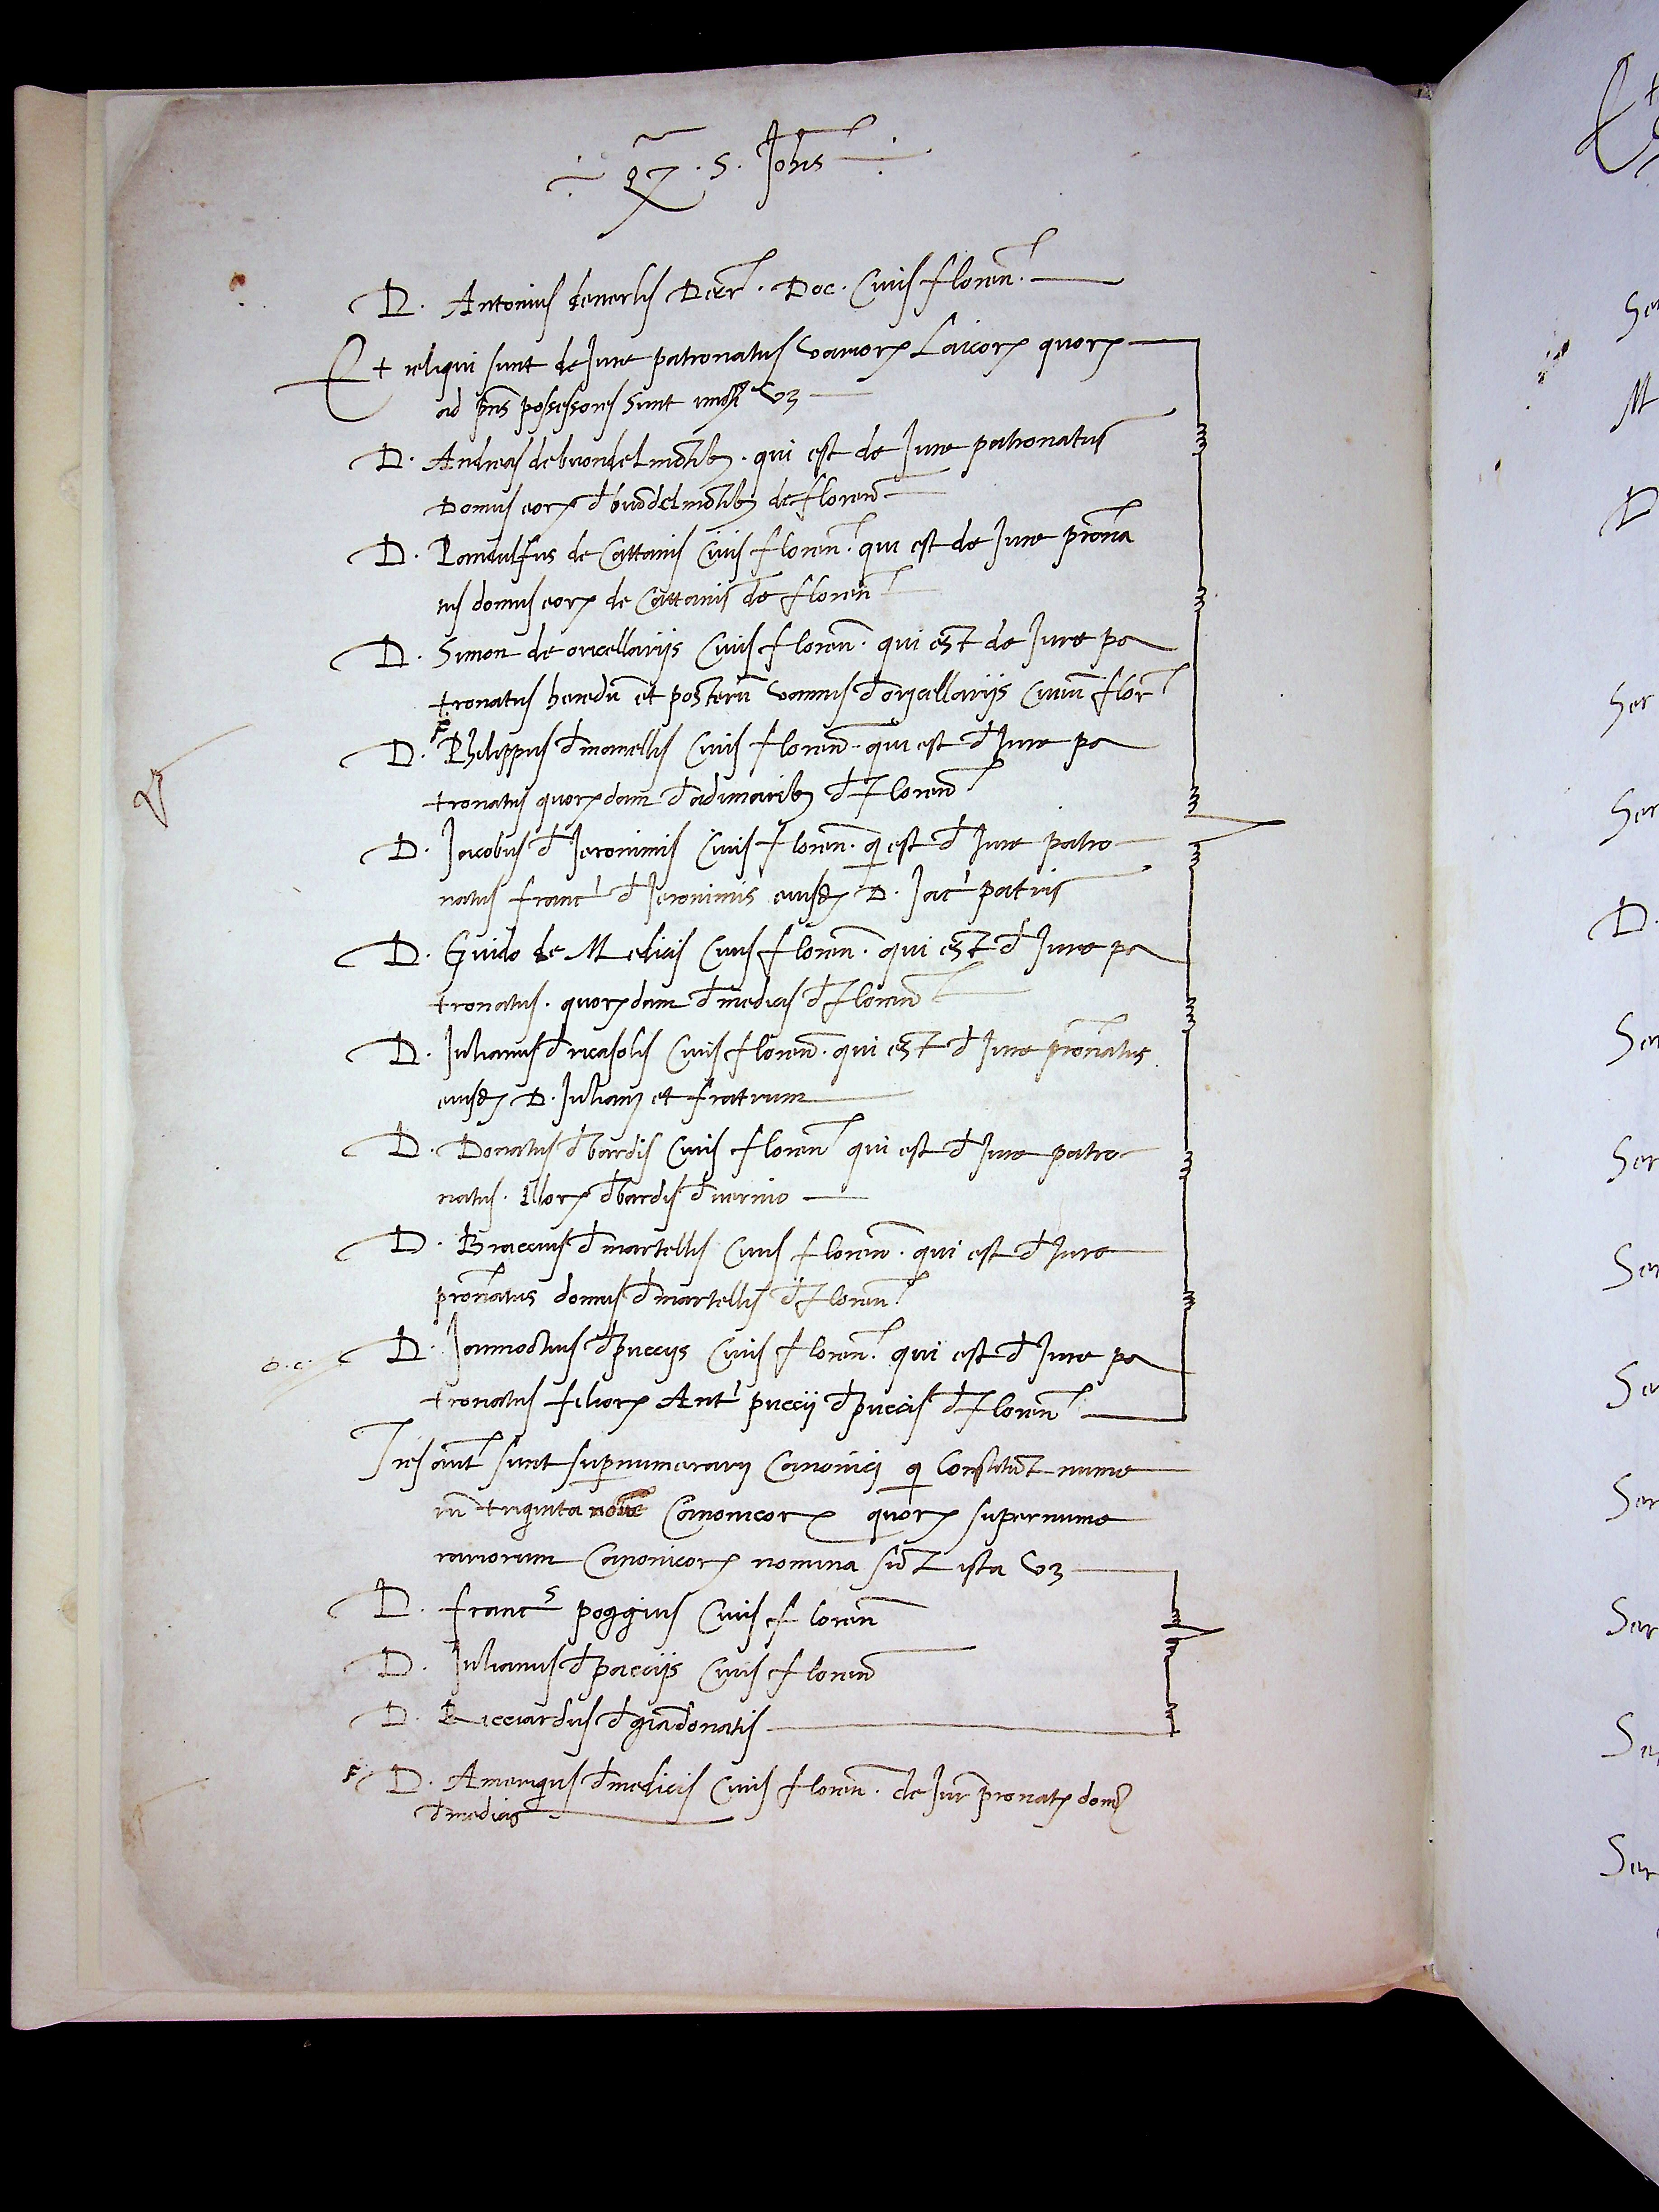 q̃z. S. Joh̃s
D. Antonius de nerlis Decr̃. Doc. Civis floreñ.
Et reliqui sunt de Jure patronatus varioꝝ Laicoꝝ quoꝝ
ad pñs possessores sunt vꝫ
D. Andreas de buondelmõtibꝫ. qui est de Jure patronatus
Domus eoꝝ đ buõdelmõtibꝫ de floreñ
D. Pandulfus de Cattanis Civis floreñ. qui est de Jure pr̃ona
tus domus eoꝝ de Cattanis de floreñ
D. Simon de oricellarijs Civis floreñ. qui est de Jure pa
tronatus heredũ et posterũ vannis đ oricellarijs Civiũ flor̃
D. Philippus đ manellis Civis floreñ. qui est đ Jure pa
tronatus quoꝝdam đ adimaribꝫ đ floreñ
D. Jacobus đ Jeronimis Civis floreñ. qi est đ Jure patro
natus franc̃i đ Jeronimis eiusđ D. Jac̃i patris
D. Guido de Medicis Civis floreñ. qui est đ Jure pa
tronatus. quoꝝdam đ medicis đ floreñ
D. Julianus đ ricasolis Civis floreñ. qui est đ Jure pr̃onatus
eiusđ D. Juliani et fratrum
D. Donatus đ bardis Civis floreñ qui est đ Jure patro
natus. Illoꝝ đ bardis đ vernio
D. Braccius đ martellis Civis floreñ. qui est đ Jure
pr̃onatus domus đ martellis đ floreñ.
D. Jannoctius đ puccijs Civis floreñ. qui est đ Jure pa
tronatus filioꝝ Ant̃i puccij đ puccis đ floreñ
Tres aũt sunt supernumerarij Canonici qi Constituũt nume
rũ triginta novẽ Canonicoꝝ quoꝝ supernume
rariorum Canonicoꝝ nomina sũt ista vꝫ
D. francˢ poggius Civis floreñ
D. Julianus đ paccijs Civis floreñ
D. Ricciardus đ giãdonatis
F D. Amerigus đ medicis Civis floreñ. de Jur̃ pronatꝫ dom9
đ medicis